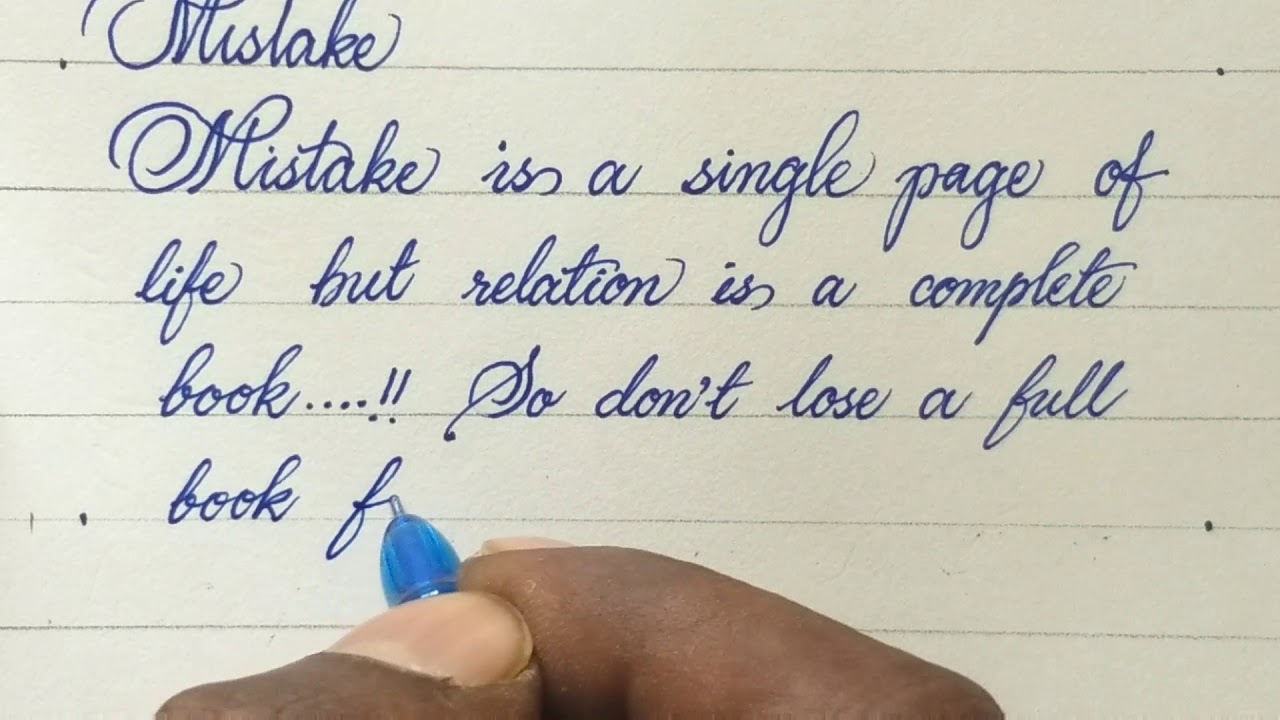 Mistake
Mistake is a single page of
life but relation is a complete
book....!! So don't lose a full
book f